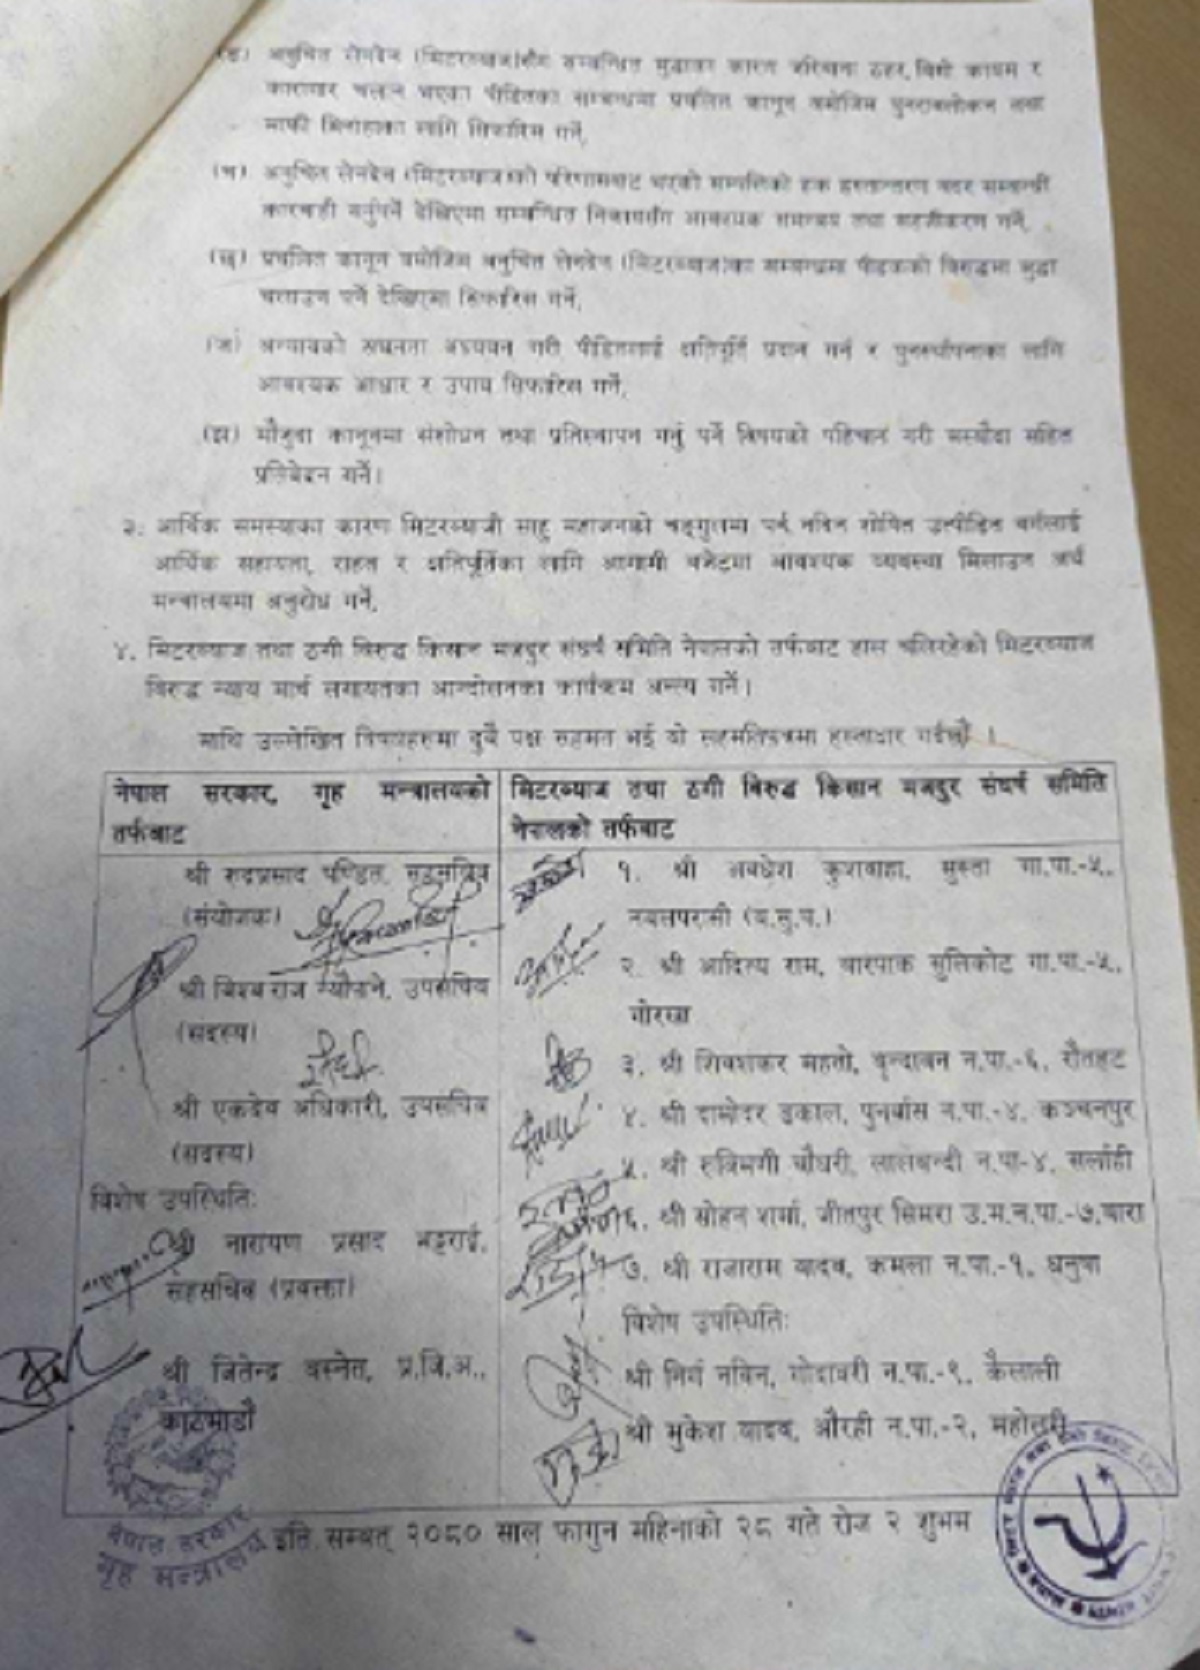 (ङ) अनुचित लेनदेन (मिटरब्याज)सँग सम्बन्धित मुद्दाका कारण जरिवाना ठहर, बिगो कायम र
कारागार चलान भएका पीडितका सम्बन्धमा प्रचलित कानून बमोजिम पुनरावलोकन तथा
माफी मिनाहाका लागि सिफारिस गर्ने,
(च) अनुचित लेनदेन (मिटरब्याज)को परिणामबाट भएको सम्पत्तिको हक हस्तान्तरण बदर सम्बन्धी
कारवाही गर्नुपर्ने देखिएमा सम्बन्धित निकायसँग आवश्यक समन्वय तथा सहजीकरण गर्ने,
(छ) प्रचलित कानून बमोजिम अनुचित लेनदेन (मिटरब्याज)का सम्बन्धमा पीडकको विरुद्धमा मुद्दा
चलाउन पर्ने देखिएमा सिफारिस गर्ने,
(ज) अन्यायको सघनता अध्ययन गरी पीडितलाई क्षतिपूर्ति प्रदान गर्न र पुनर्स्थापनाका लागि
आवश्यक आधार र उपाय सिफारिस गर्ने,
(झ) मौजुदा कानूनमा संशोधन तथा प्रतिस्थापन गर्नु पर्ने विषयको पहिचान गरी मस्यौदा सहित
प्रतिवेदन गर्ने।
३. आर्थिक समस्याका कारण मिटरब्याजी साहु महाजनको चङ्गुलमा पर्न नदिन शोषित उत्पीडित वर्गलाई
आर्थिक सहायता, राहत र क्षतिपूर्तिका लागि आगामी बजेटमा आवश्यक व्यवस्था मिलाउन अर्थ
मन्त्रालयमा अनुरोध गर्ने,
४. मिटरब्याज तथा ठगी विरुद्ध किसान मजदुर संघर्ष समिति नेपालको तर्फबाट हाल चलिरहेको मिटरब्याज
विरुद्ध न्याय मार्च लगायतका आन्दोलनका कार्यक्रम अन्त्य गर्ने।
माथि उल्लेखित विषयहरुमा दुवै पक्ष सहमत भई यो सहमतिपत्रमा हस्ताक्षर गर्दछौं ।
नेपाल सरकार, गृह मन्त्रालयको
तर्फबाट
श्री रुद्रप्रसाद पण्डित, सहसचिव
(संयोजक)
श्री विश्व राज न्यौपाने, उपसचिव
(सदस्य)
श्री एकदेव अधिकारी, उपसचिव
(सदस्य)
विशेष उपस्थिति:
श्री नारायण प्रसाद भट्टराई,
सहसचिव (प्रवक्ता)
श्री जितेन्द्र बस्नेत, प्र.जि.अ.,
काठमाडौं
मिटरब्याज तथा ठगी विरुद्ध किसान मजदुर संघर्ष समिति
नेपालको तर्फबाट
१. श्री अवधेश कुशवाहा, सुस्ता गा.पा.-५,
नवलपरासी (ब.सु.प.)
२. श्री आदित्य राम, बारपाक सुलिकोट गा.पा.-५,
गोरखा
३. श्री शिवशंकर महतो, वृन्दावन न.पा.-६, रौतहट
४. श्री दामोदर ढकाल, पुनर्वास न.पा.-४, कञ्चनपुर
५. श्री रुक्मिणी चौधरी, लालबन्दी न.पा-४, सर्लाही
६. श्री सोहन शर्मा, जीतपुर सिमरा उ.म.न.पा.-७,बारा
७. श्री राजाराम यादव, कमला न.पा.-१, धनुषा
विशेष उपस्थिति:
श्री निर्ग नविन, गोदावरी न.पा.-९, कैलाली
श्री मुकेश यादव, औरही न.पा.-२, महोत्तरी
इति सम्बत् २०८० साल फागुन महिनाको २८ गते रोज २ शुभम
नेपाल सरकार
गृह मन्त्रालय